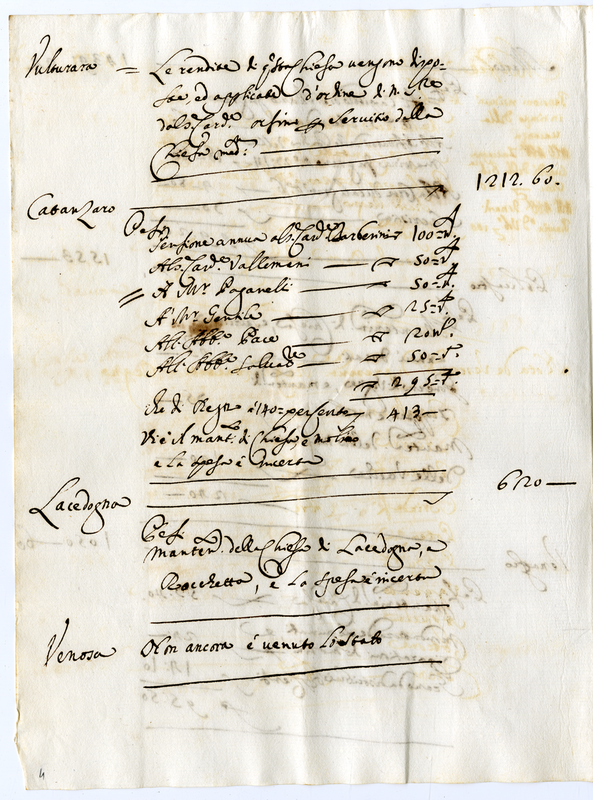 Vulturara = Le rendite di q.sta Chiesa vengono dispo-
ste, ed applicate d'ordine di N. S.re
dal S. Card.e Orsino p Servitio della
Chiesa med.a
Catanzaro 1212.60.
Pesi
Pensione annua al S. Card.e Barberini 100=
Al S. Card.e Vallemani 50=
A Mr. Paganelli 50=
A Mr. Gentile 25=
All. Abb.e Pace 20
All. Abb.e 50=
295=
che di Regn. a 140= per cento 413—
Vi è il mant.to di Chiesa, e mobili
e la spesa è incerta
Lacedogna 620—
Pesi
Manten. della Chiesa di Lacedogna, e
Rocchetta, e la spesa è incerta
Venosa Non ancora è venuto lo stato
4